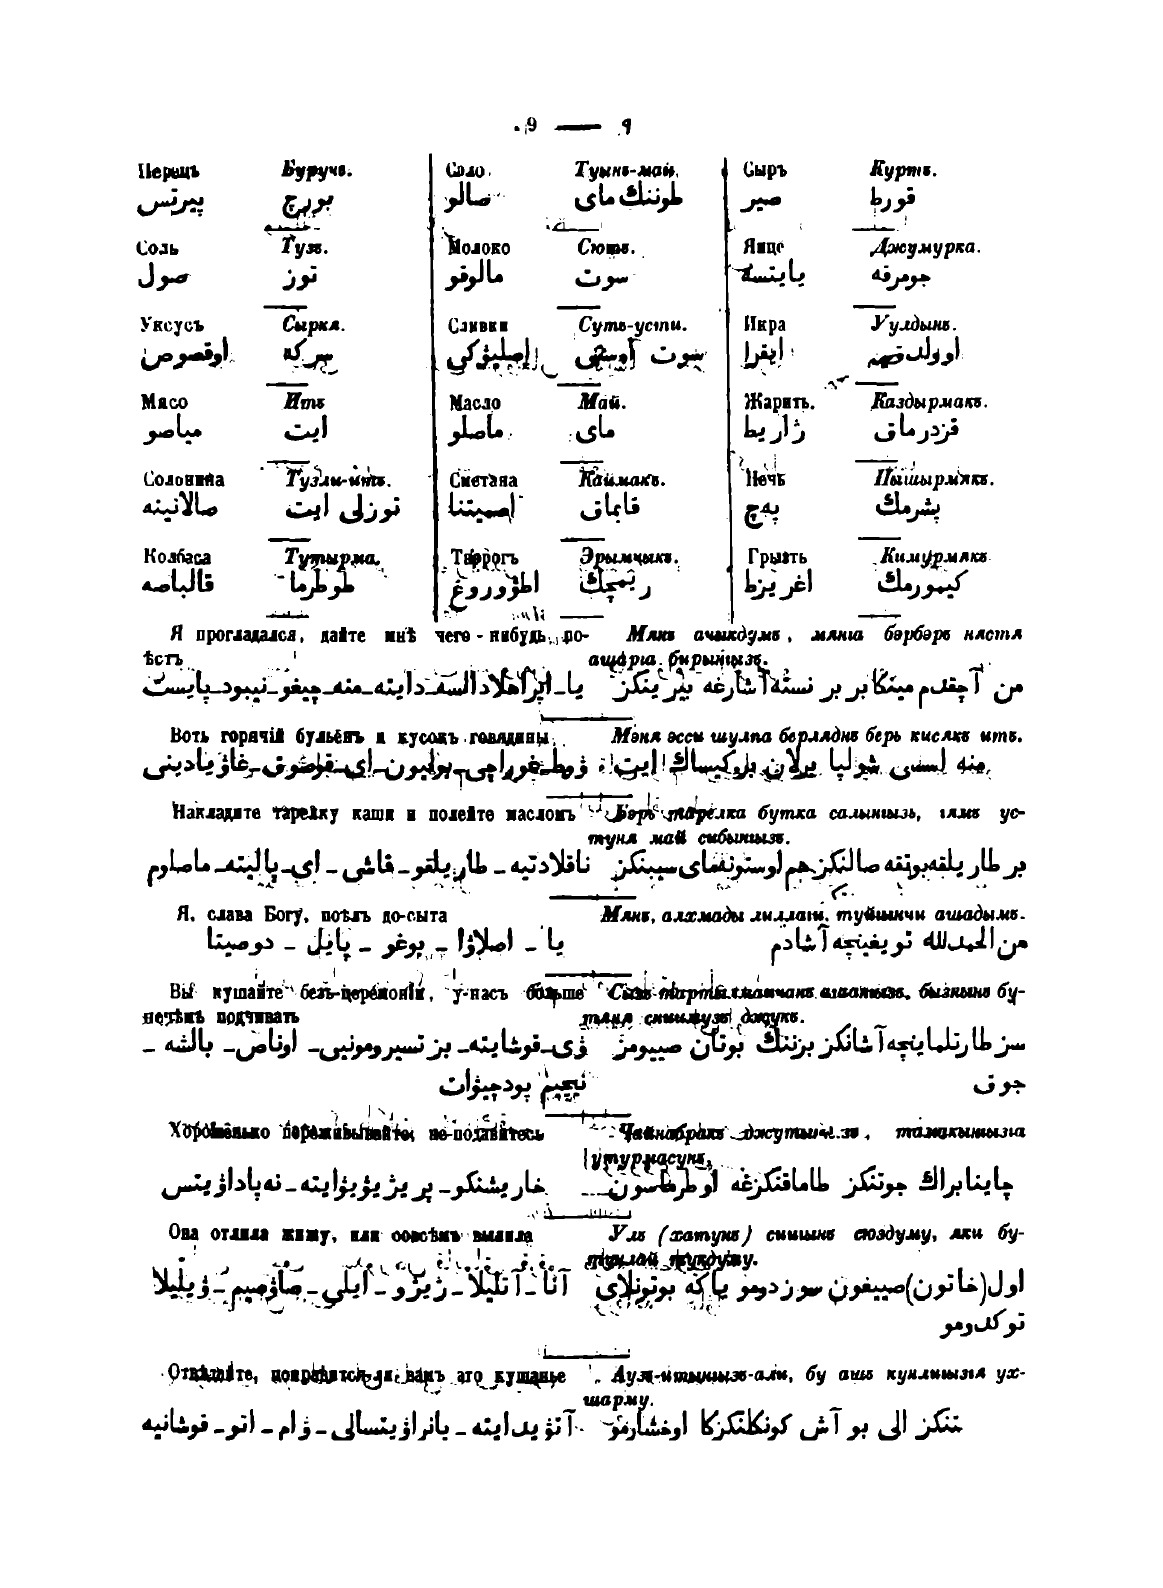 9 — ٩
Перецъ Буручъ. Сало. Туынъ-май. Сыръ Куртъ.
پيرتس بورچ صالو طوننك مای صير قورط
Соль Тузъ. Молоко Сютъ. Яице Джумурка.
صول توز مالوقو سوت يايتسه جومرقه
Уксусъ Сыркя. Сливки Сутъ-усти. Икра Уулдынъ.
اوقصوص سركه اصليۋكی سوت اوستی ايقرا
Мясо Итъ Масло Май. Жарить. Каздырмакъ.
مياصو ايت ماصلو مای ژاريط قزدرماق
Солонина Тузли-итъ. Сметана Каймакъ. Печь Пышырмякъ.
صالانينه توزلی ايت اصميتنا قايماق پەچ پشرمك
Колбаса Тутырма. Творогъ Эрымчыкъ. Грызть Кимурмякъ
قالباصه طوطرما اطۋوروغ ريمچك اغريزط كيمورمك
Я прогладался, дайте мнѣ чего-нибудь по- Мянъ ачыкдумъ, мяниа бэрбэръ нястя
ѣсть ашарга бирыниызъ.
من آچقدم مينكا بر بر نسته آشارغه بيرينكز يا - اپراهلادالسه - دايته - منه - چيغو - نيبود - پايست
Вотъ горячій бульёнъ и кусокъ говядины. Мэня эссы шулпа берляднъ беръ кисякъ итъ.
منه اسسی شولپا برلان بر كيساك ايت ۋوط - غوراچی - بوليون - ای - قوصوق - غاۋيادينی
Накладите тарелку каши и полейте масломъ Бэръ тарелка бутка салыниызъ, іямъ ус-
туня май сибыниызъ.
بر طاريلقه بوتقه صالنكز هم اوستونه مای سيبنكز ناقلادتيه - طاريلقو - قاشی - ای - پاليته - ماصلوم
Я, слава Богу, поѣлъ до-сыта Мянъ, алхмады лиллаги, туйынчи ашадымъ.
من الحمدلله تويغينچه آشادم يا - اصلاۋا - بوغو - پايل - دوصيتا
Вы кушайте безъ-церемоніи, у-насъ больше Сызъ тартылмаичанъ ашаниызъ, бызнынъ бу-
нечѣмъ подчивать тяня сыиымузъ джукъ.
سز طارتلماينچه آشانكز بزننك بوتان صييومز ۋی - قوشايته - بز تسيرومونيی - اوناص - بالشه -
جوق نيچيم پودچيۋات
Хорошенько пережевывайте, не-подавитесь Чайнабракъ джутыниызъ, тамакыниызга
утурмасунъ.
چاينابراك جوتنكز طاماقنكزغه اوطرماسون خاريشنكو - پريژيۋيۋايته - نه پاداۋيتس
Она отлила жижу, или совсѣмъ вылила Улъ (хатунъ) сыиынъ сюздуму, яки бу-
тунлай тукдуму.
اول (خاتون) صييغون سوزدومو ياكه بوتونلای آنا - آتليلا - ژيژو - ايلی - صاۋصيم - ۋيليلا
توكدومو
Отвѣдайте, понравится-ли вамъ это кушанье Аузъ-итыниызъ-али, бу ашъ кунлиниызгя ух-
шарму.
تنكز الی بو آش كونكلنكزكا اوخشارمو آتۋيدايته - پانراۋيتسالی - ۋام - اتو - قوشانيه